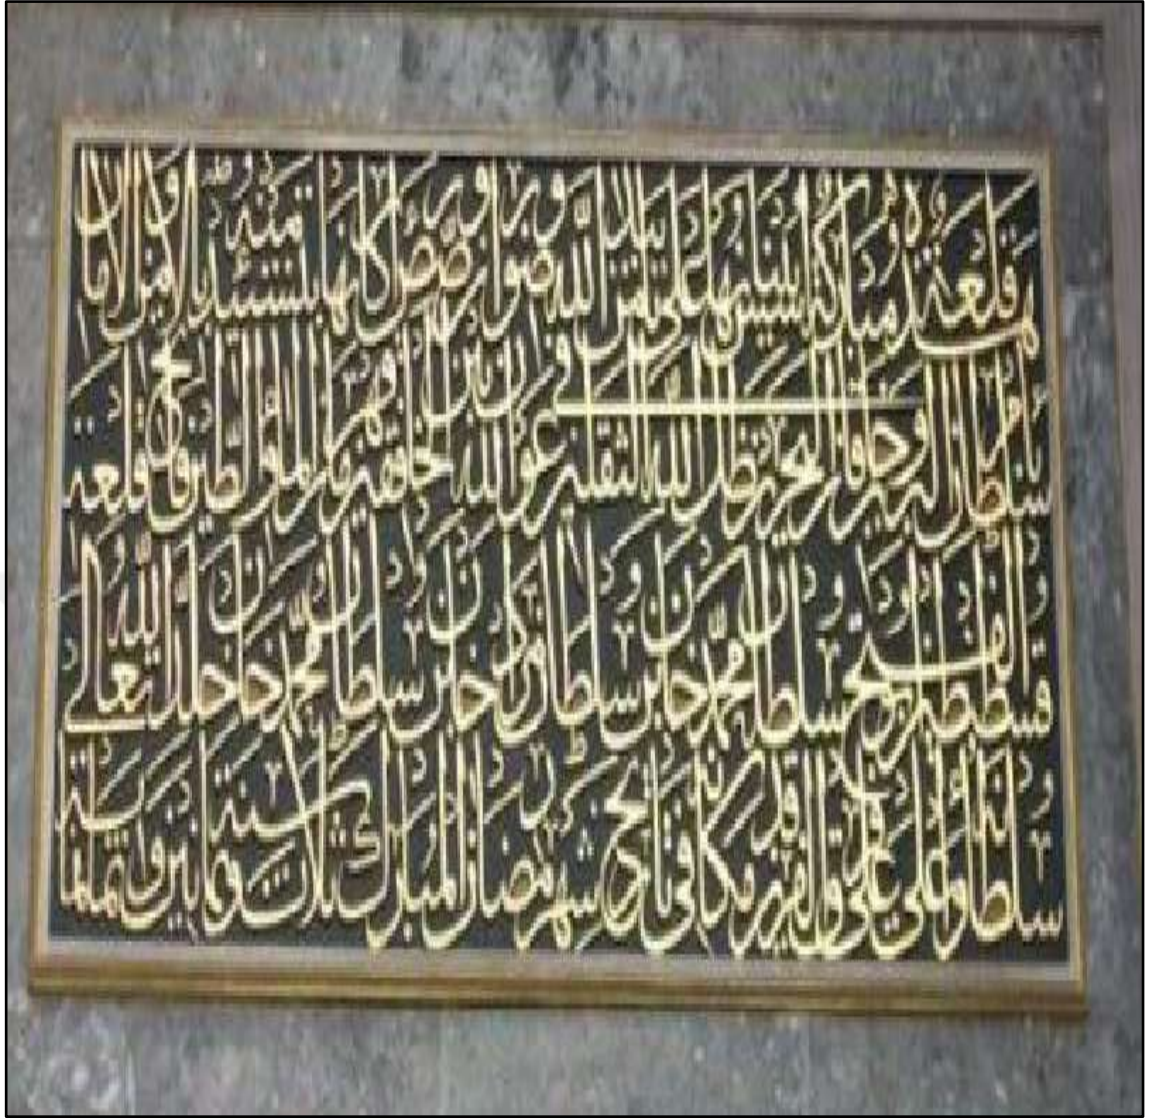 هذه قلعة مباركة اسس بنيانها على من الله ورضوان ورصص اركانها بالامن والامان
سلطان البرين وخاقان البحرين ظل الله في الثقلين عون الله بين الخافقين قهرمان الماء والطين فاتح قلعة
قسطنطنية ابو الفتح سلطان محمد خان بن سلطان مراد خان بن سلطان محمد خان خلد الله تعالى
سلطانه واعلى على فرق الفرقدين مكانه في تاريخ شهر رمضان المبارك سنة ثلاث وثمانين وثمانمائة